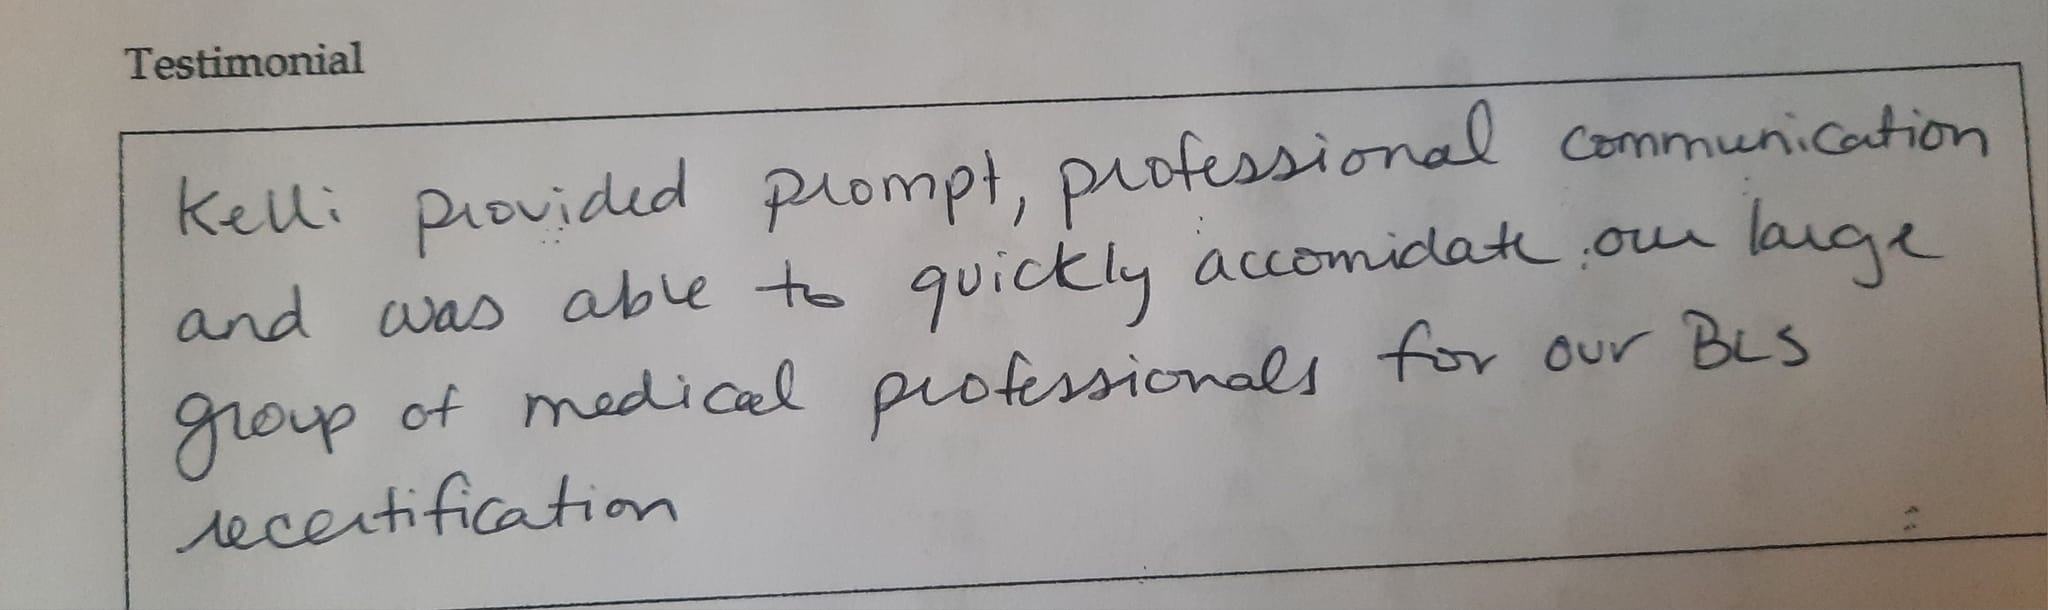 Testimonial
Kelli provided prompt, professional communication
and was able to quickly accomidate our large
group of medical professionals for our BLS
recertification